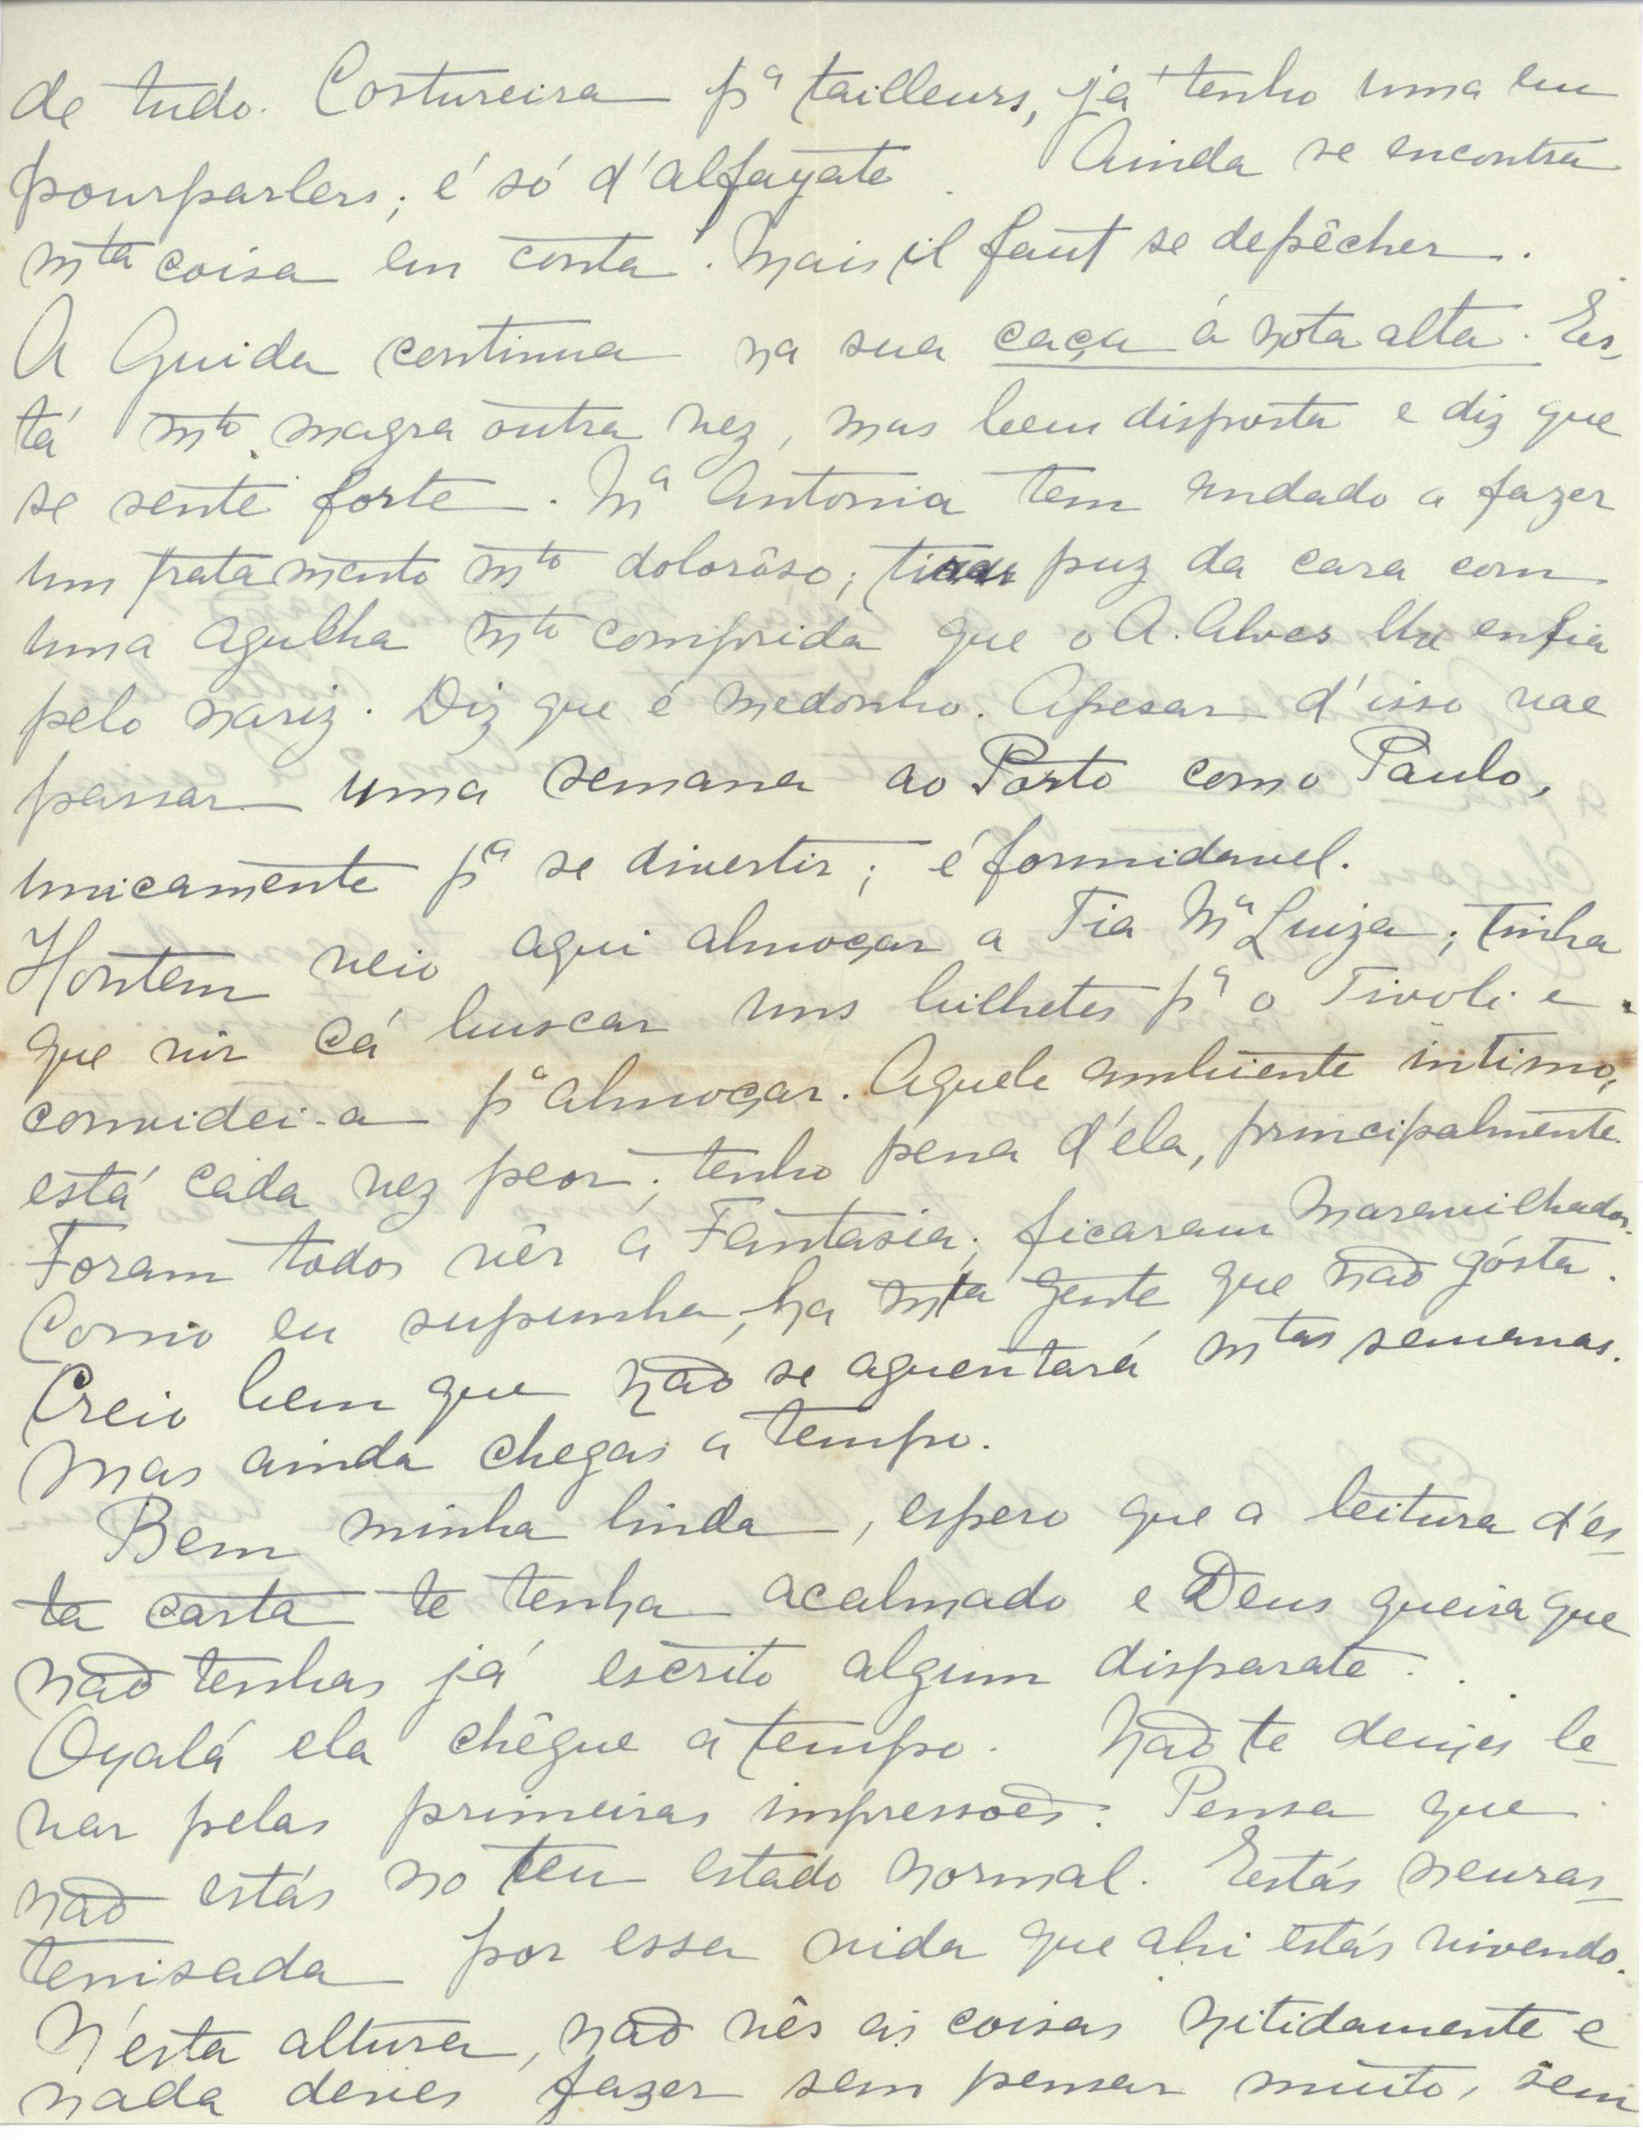 de tudo. Costureira pª tailleurs, já tenho uma em
pourparlers; é só d'alfayate. Ainda se encontra
mta coisa em conta. Mais il faut se depêcher.
A Guida continua na sua caça á nota alta. Es-
tá mto magra outra vez, mas bem disposta e diz que
se sente forte. Mª Antonia tem andado a fazer
um tratamento mto dolorôso; tirar puz da cara com
uma agulha mto comprida que o A. Alves lha enfia
pelo nariz. Diz que é medonho. Apesar d'isso vae
passar uma semana ao Porto com o Paulo,
unicamente pª se divertir; é formidavel.
Hontem veio aqui almoçar a Tia Mª Luiza; tinha
que vir cá buscar uns bilhetes pª o Tivoli e
convidei-a pª almoçar. Aquele ambiente intimo,
está cada vez peor; tenho pena d'éla, principalmente.
Foram todos vêr a Fantasia; ficaram maravilhados.
Como eu supunha, ha mta gente que não gósta.
Creio bem que não se aguentará mtas semanas.
Mas ainda chegas a tempo.
Bem minha linda, espero que a leitura d'és-
ta carta te tenha acalmado e Deus queira que
não tenhas já escrito algum disparate...
Oyalá ela chêgue a tempo. Não te deixes le-
var pelas primeiras impressoẽs. Pensa que
não estás no teu estado normal. Estás neuras-
tenisada por essa vida que ahi estás vivendo.
N'ésta altura, não vês as coisas nitidamente e
nada deves fazer sem pensar muito, sem